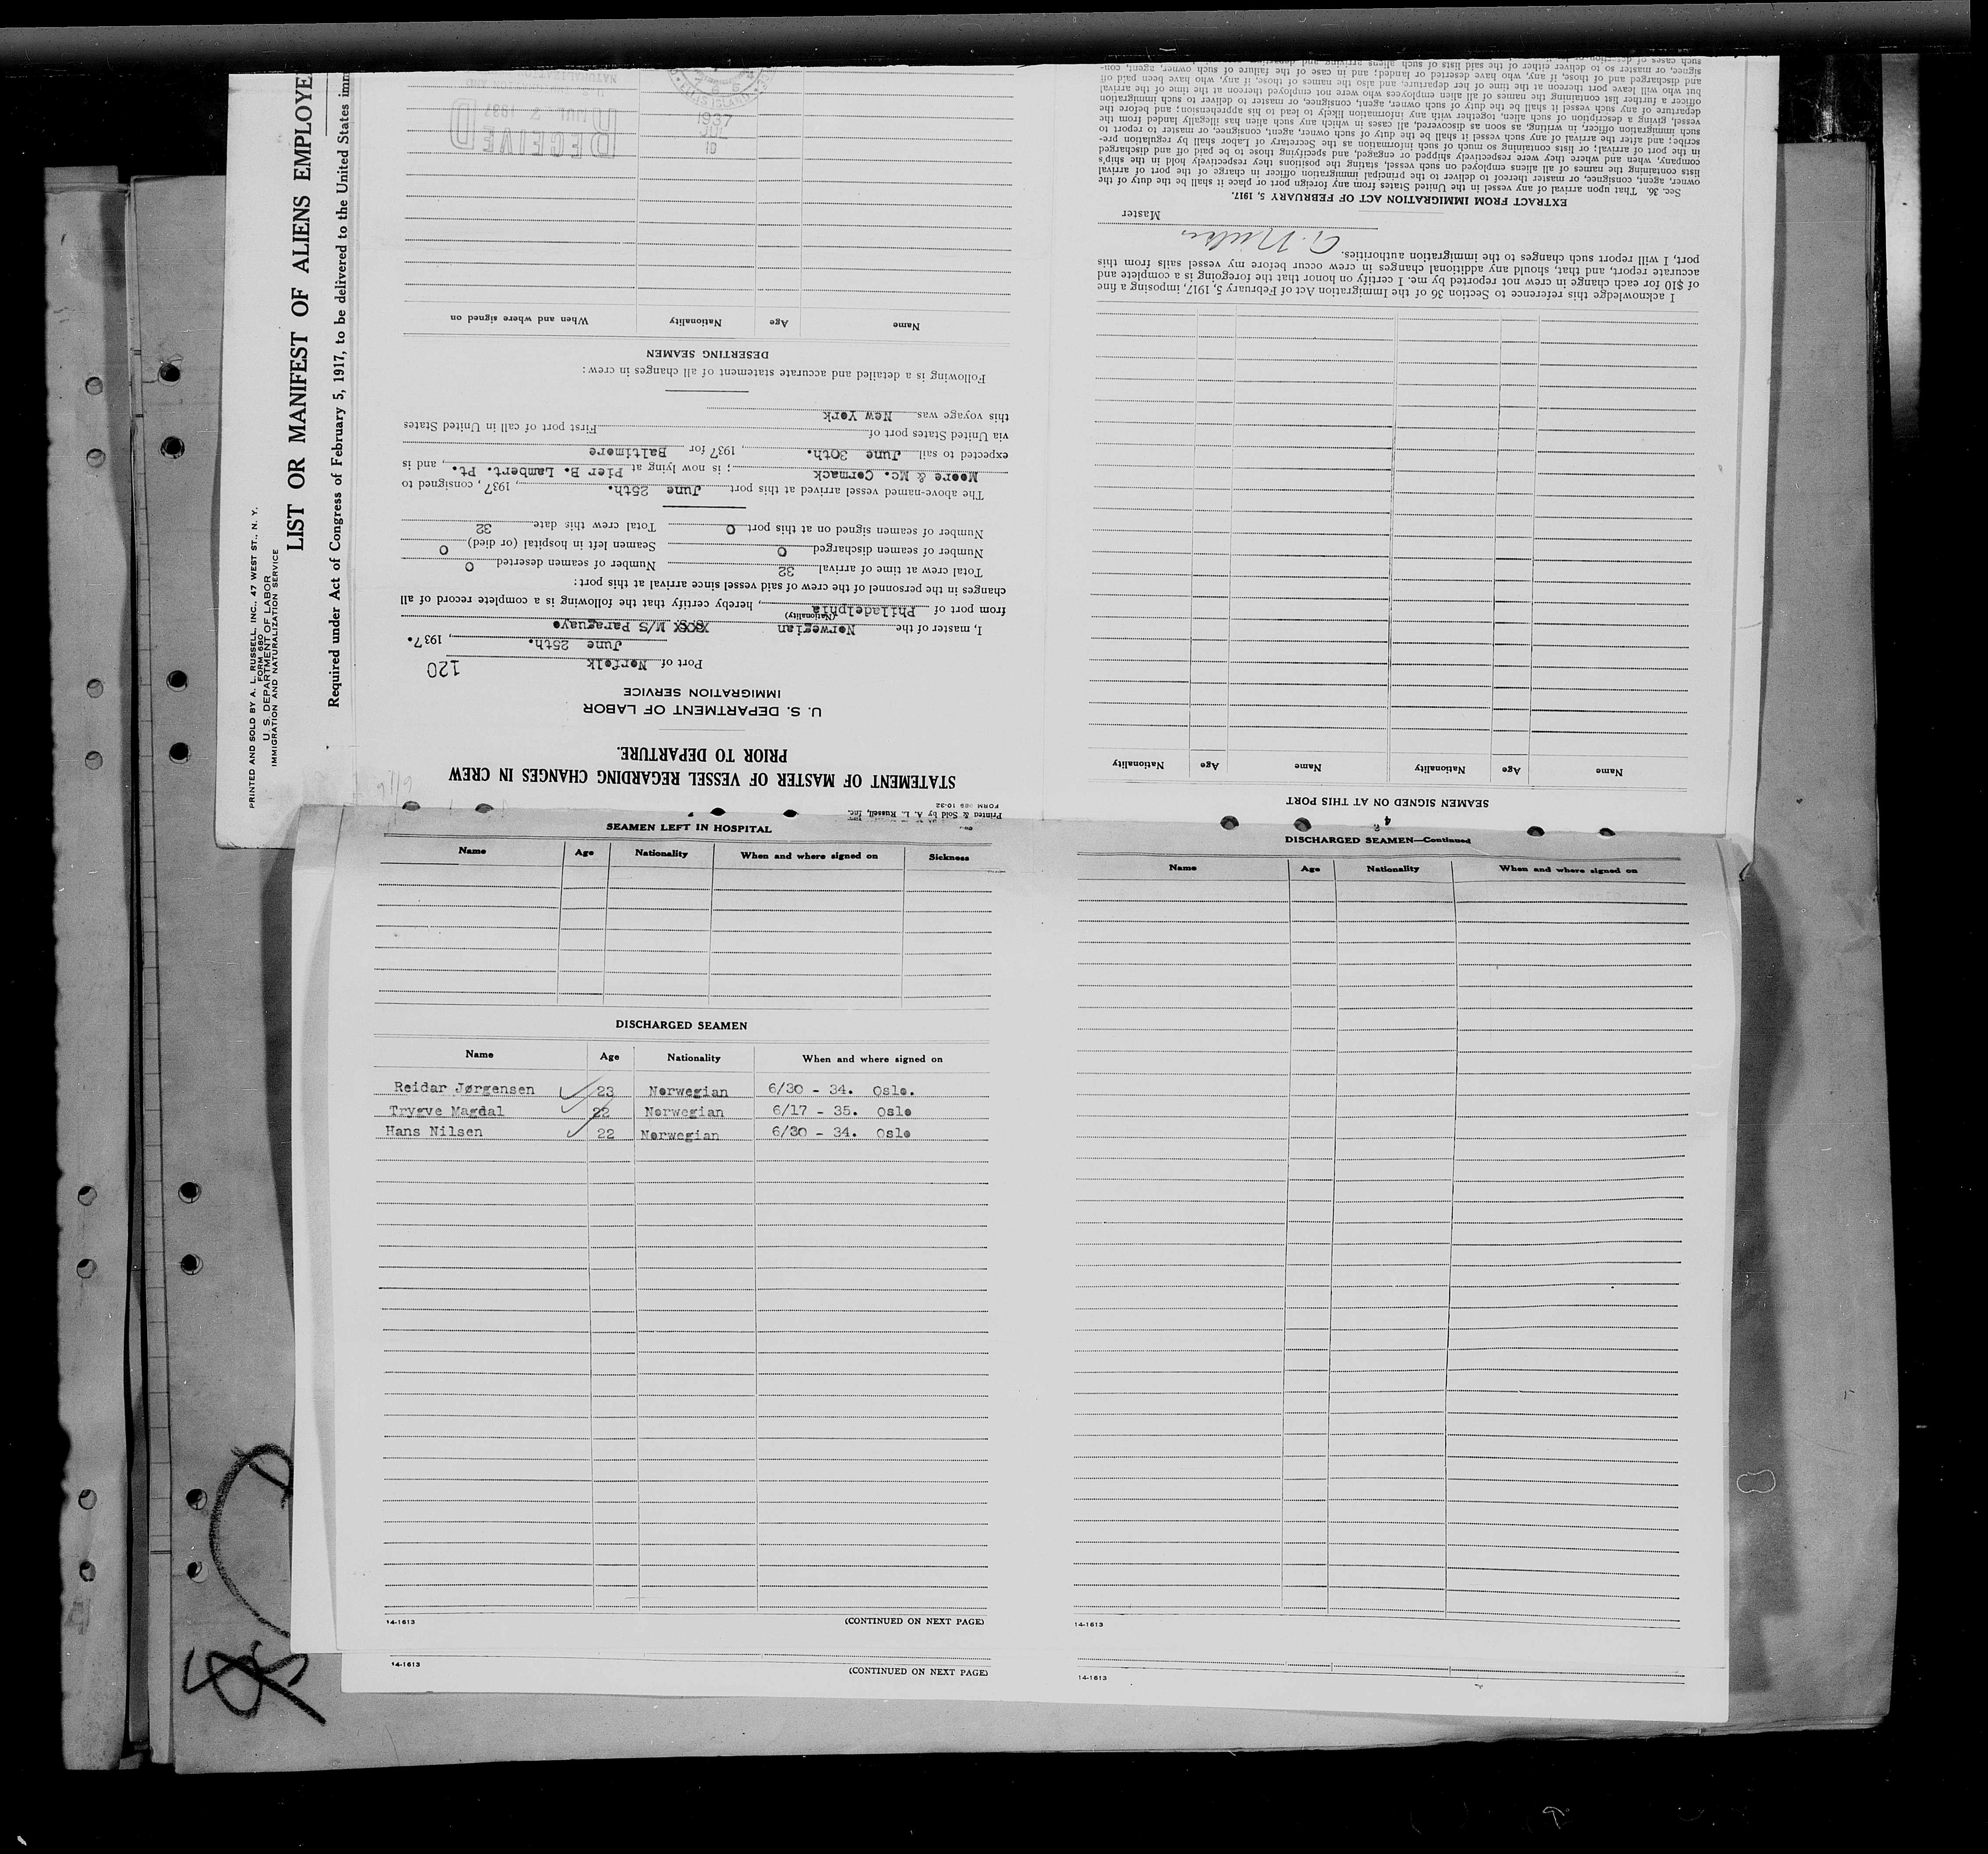 PRINTED AND SOLD BY A. L. RUSSELL, INC., 47 WEST ST., N. Y.
FORM 680
U. S. DEPARTMENT OF LABOR
IMMIGRATION AND NATURALIZATION SERVICE
LIST OR MANIFEST OF ALIENS EMPLOYE
Required under Act of Congress of February 5, 1917, to be delivered to the United States imm
Printed & Sold by A. L. Russell, Inc.
FORM 689 10-32
STATEMENT OF MASTER OF VESSEL REGARDING CHANGES IN CREW
PRIOR TO DEPARTURE.
U. S. DEPARTMENT OF LABOR
IMMIGRATION SERVICE
120
Port of Norfolk
June 25th., 1937.
I, master of the Norwegian XXXX M/S Paraguayo
(Nationality)
from port of Philadelphia, hereby certify that the following is a complete record of all
changes in the personnel of the crew of said vessel since arrival at this port:
Total crew at time of arrival 32 Number of seamen deserted 0
Number of seamen discharged 0 Seamen left in hospital (or died) 0
Number of seamen signed on at this port 0 Total crew this date 32
The above-named vessel arrived at this port June 25th., 1937, consigned to
Moore & Mc. Cormack; is now lying at Pier B. Lambert. Pt., and is
expected to sail June 30th., 1937 for Baltimore
via United States port of First port of call in United States
this voyage was New York
Following is a detailed and accurate statement of all changes in crew:
DESERTING SEAMEN
Name Age Nationality When and where signed on
10
JUL
1937
ELLIS ISLAND
RECEIVED
JUL 2 1937
SEAMEN SIGNED ON AT THIS PORT
Name Age Nationality Name Age Nationality
I acknowledge this reference to Section 36 of the Immigration Act of February 5, 1917, imposing a fine
of $10 for each change in crew not reported by me. I certify on honor that the foregoing is a complete and
accurate report, and that, should any additional changes in crew occur before my vessel sails from this
port, I will report such changes to the immigration authorities.
Master
EXTRACT FROM IMMIGRATION ACT OF FEBRUARY 5, 1917.
Sec. 36. That upon arrival of any vessel in the United States from any foreign port or place it shall be the duty of the
owner, agent, consignee, or master thereof to deliver to the principal immigration officer in charge of the port of arrival
lists containing the names of all aliens employed on such vessel, stating the positions they respectively hold in the ship's
company, when and where they were respectively shipped or engaged, and specifying those to be paid off and discharged
in the port of arrival; or lists containing so much of such information as the Secretary of Labor shall by regulation pre-
scribe; and after the arrival of any such vessel it shall be the duty of such owner, agent, consignee, or master to report to
such immigration officer, in writing, as soon as discovered, all cases in which any such alien has illegally landed from the
vessel, giving a description of such alien, together with any information likely to lead to his apprehension; and before the
departure of any such vessel it shall be the duty of such owner, agent, consignee, or master to deliver to such immigration
officer a further list containing the names of all alien employees who were not employed thereon at the time of the arrival
but who will leave port thereon at the time of her departure, and also the names of those, if any, who have been paid off
and discharged and of those, if any, who have deserted or landed; and in case of the failure of such owner, agent, con-
signee, or master so to deliver either of the said lists of such aliens arriving and departing
SEAMEN LEFT IN HOSPITAL
Name Age Nationality When and where signed on Sickness
DISCHARGED SEAMEN
Name Age Nationality When and where signed on
Reidar Jørgensen 23 Norwegian 6/30 - 34. Oslo.
Trygve Magdal 22 Norwegian 6/17 - 35. Oslo
Hans Nilsen 22 Norwegian 6/30 - 34. Oslo
14-1613 (CONTINUED ON NEXT PAGE)
14-1613 (CONTINUED ON NEXT PAGE)
4
DISCHARGED SEAMEN—Continued
Name Age Nationality When and where signed on
14-1613
14-1613